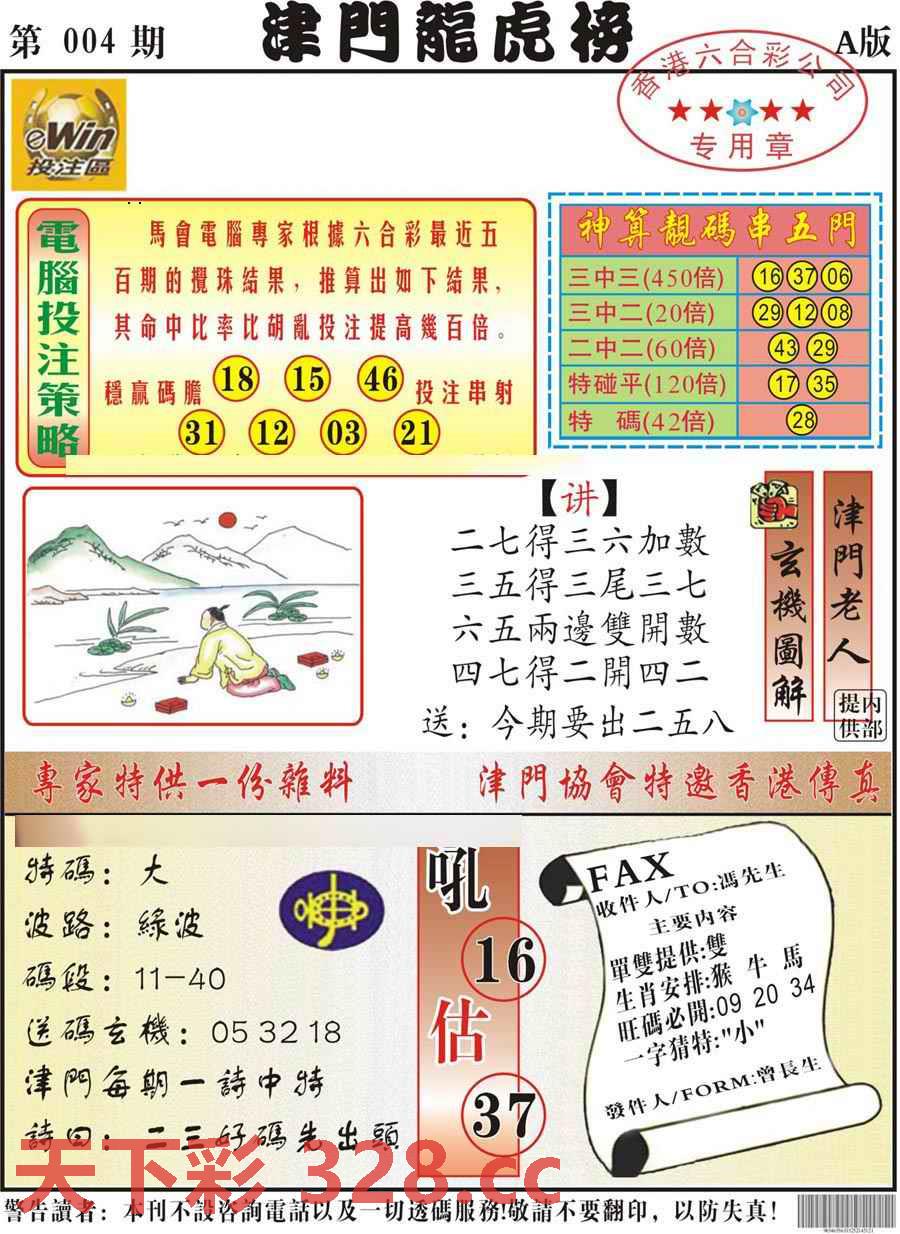 第 004 期
津門龍虎榜
A版
香港六合彩公司
专用章
eWin
投注區
電腦投注策略
馬會電腦專家根據六合彩最近五
百期的攪珠結果，推算出如下結果，
其命中比率比胡亂投注提高幾百倍。
穩贏碼膽 18 15 46 投注串射
31 12 03 21
神算靚碼串五門
三中三(450倍) 16 37 06
三中二(20倍) 29 12 08
二中二(60倍) 43 29
特碰平(120倍) 17 35
特 碼(42倍) 28
【讲】
二七得三六加數
三五得三尾三七
六五兩邊雙開數
四七得二開四二
送：今期要出二五八
玄機圖解
津門老人
内部提供
專家特供一份雜料
津門協會特邀香港傳真
特碼：大
波路：綠波
碼段：11-40
送碼玄機：05 32 18
津門每期一詩中特
詩曰：二三好碼先出頭
吼
16
估
37
FAX
收件人/TO:馮先生
主要内容
單雙提供:雙
生肖安排:猴 牛 馬
旺碼必開:09 20 34
一字猜特:"小"
發件人/FORM:曾長生
天下彩 328.cc
警告讀者：本刊不設咨詢電話以及一切透碼服務!敬請不要翻印，以防失真!